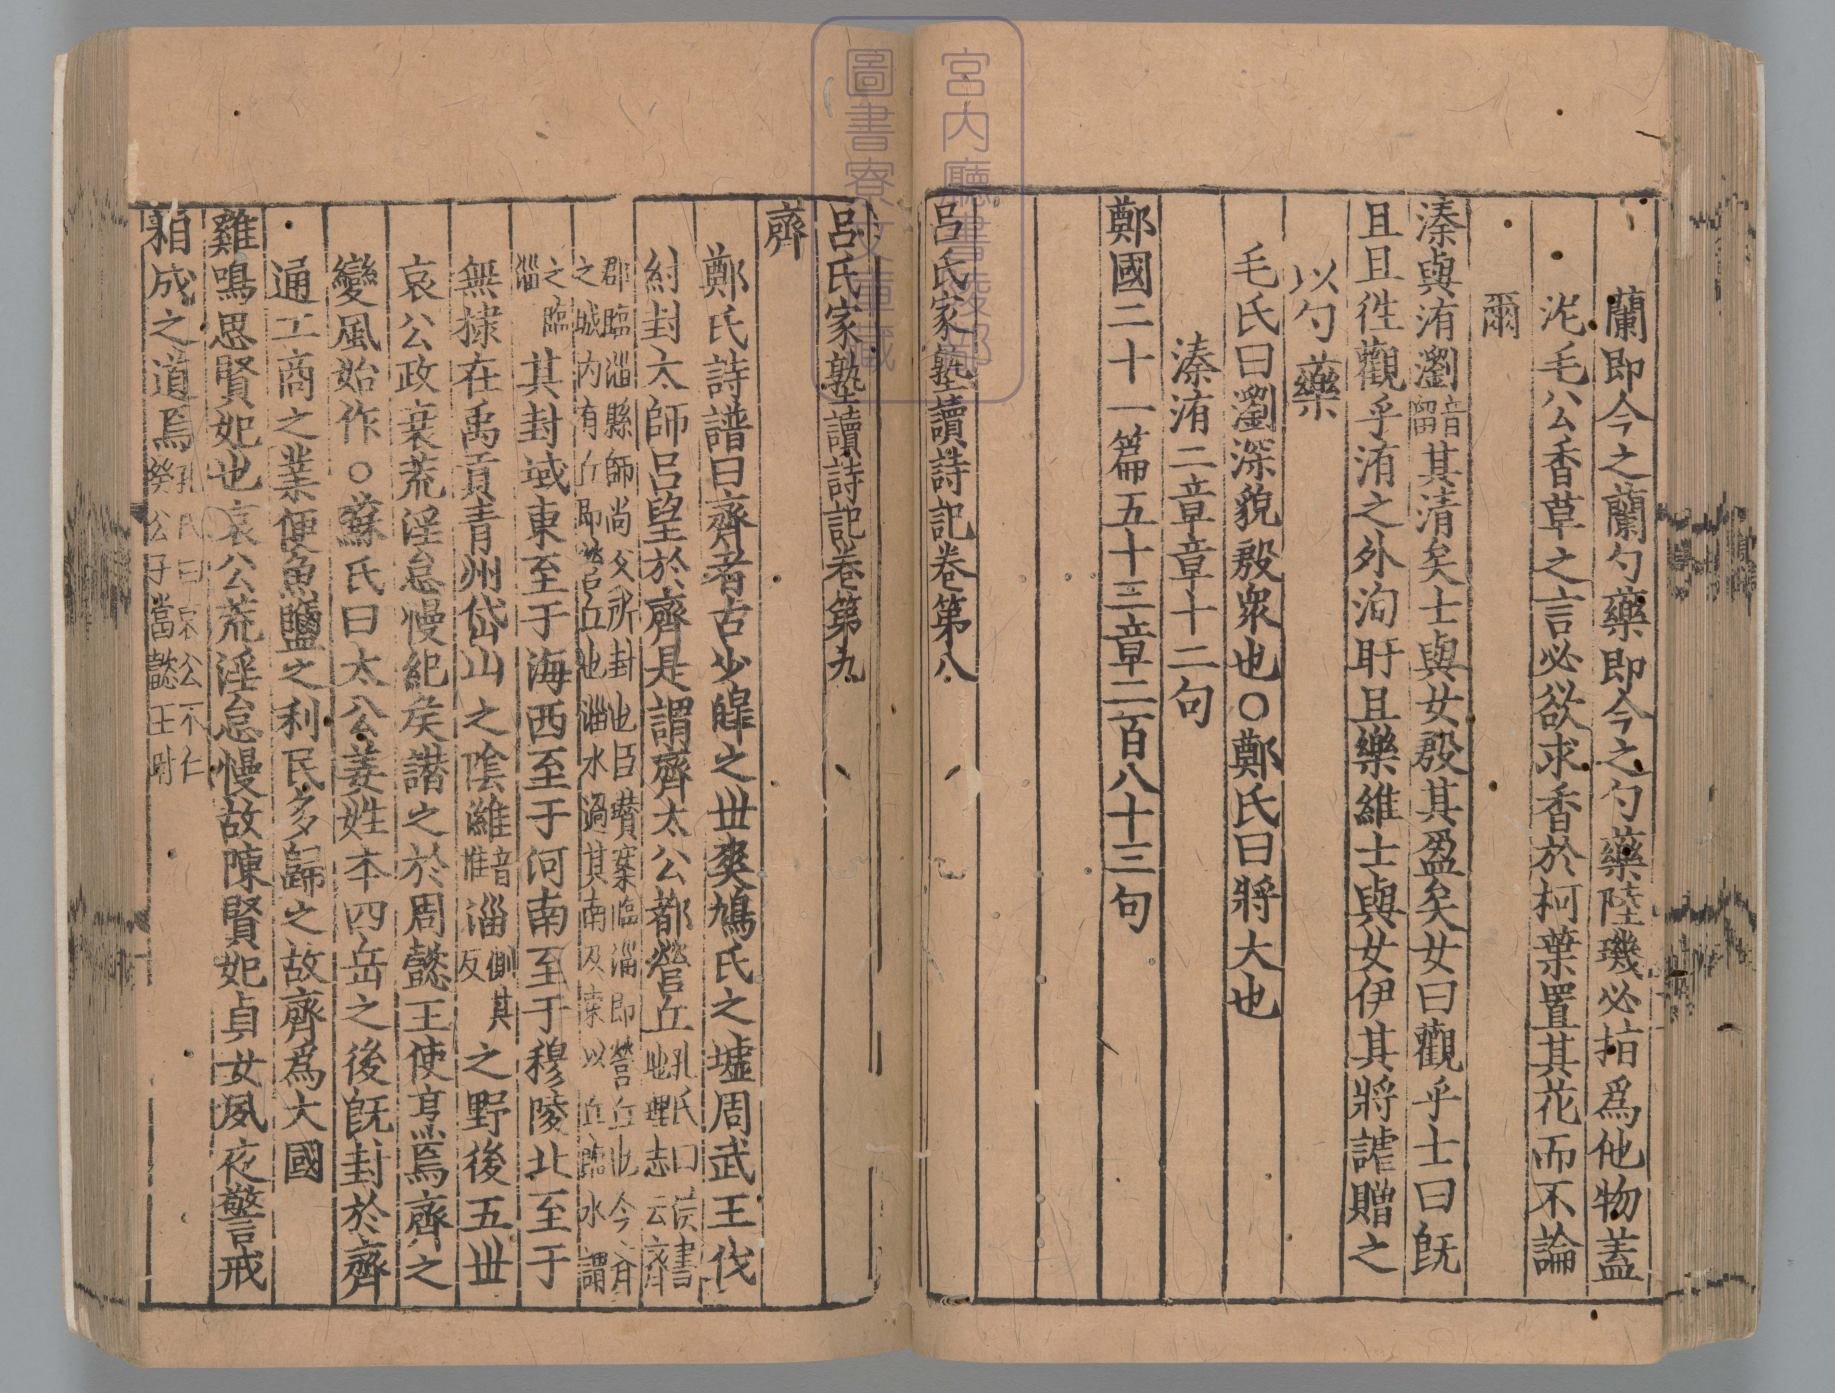 蘭即今之蘭勺藥即今之勺藥陸璣必指爲他物蓋
泥毛公香草之言必欲求香於柯葉置其花而不論
爾
溱與洧瀏音留其清矣士與女殷其盈矣女曰觀乎士曰旣
且且徃觀乎洧之外洵盱且樂維士與女伊其將謔贈之
以勺藥
毛氏曰瀏深貌殷衆也○鄭氏曰將大也
溱洧二章章十二句
鄭國二十一篇五十三章二百八十三句
呂氏家塾讀詩記卷第八
呂氏家塾讀詩記卷第九
齊
鄭氏詩譜曰齊者古少皥之丗爽鳩氏之墟周武王伐
紂封太師呂望於齊是謂齊太公都營丘孔氏曰漢書地理志云齊
郡臨淄縣師尚父所封也臣瓚案臨淄即營丘也今齊
之城内有丘即營丘也淄水過其南及東以丘臨水謂
之臨淄其封域東至于海西至于河南至于穆陵北至于
無棣在禹貢青州岱山之陰濰音惟淄側其反之野後五丗
哀公政衰荒淫怠慢紀矦譖之於周懿王使烹焉齊之
變風始作○蘇氏曰太公姜姓本四岳之後旣封於齊
通工商之業便魚鹽之利民多歸之故齊爲大國
雞鳴思賢妃也哀公荒淫怠慢故陳賢妃貞女夙夜警戒
相成之道焉孔氏曰哀公不仁癸公子當懿王時
宮内廳書陵部
圖書寮文庫藏